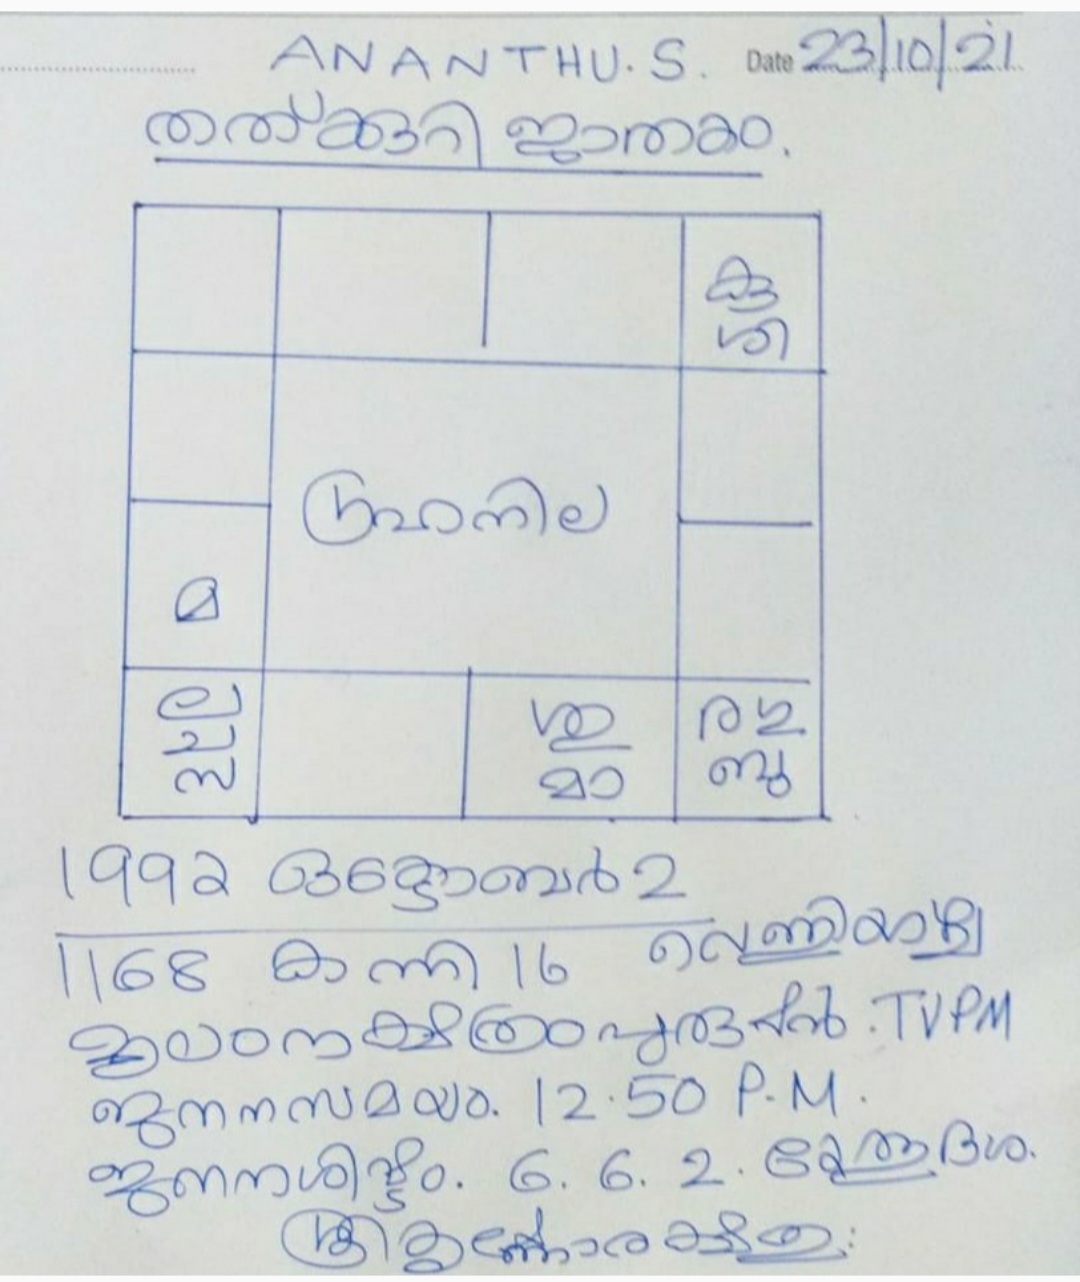 ANANTHU.S. Date 23/10/21
തത്ക്കുറി ജാതകം.
കു
ശി
ഗ്രഹനില
മ
ല
ച
സ
ശു
മാ
ര ഗു
ബു
1992 ഒക്ടോബർ 2
1168 കന്നി 16 വെള്ളിയാഴ്ച
മൂലം നക്ഷത്രം പുരുഷൻ. TVPM
ജനനസമയം. 12.50 P.M.
ജനനശിഷ്ടം. 6. 6. 2. കേതു ദശ.